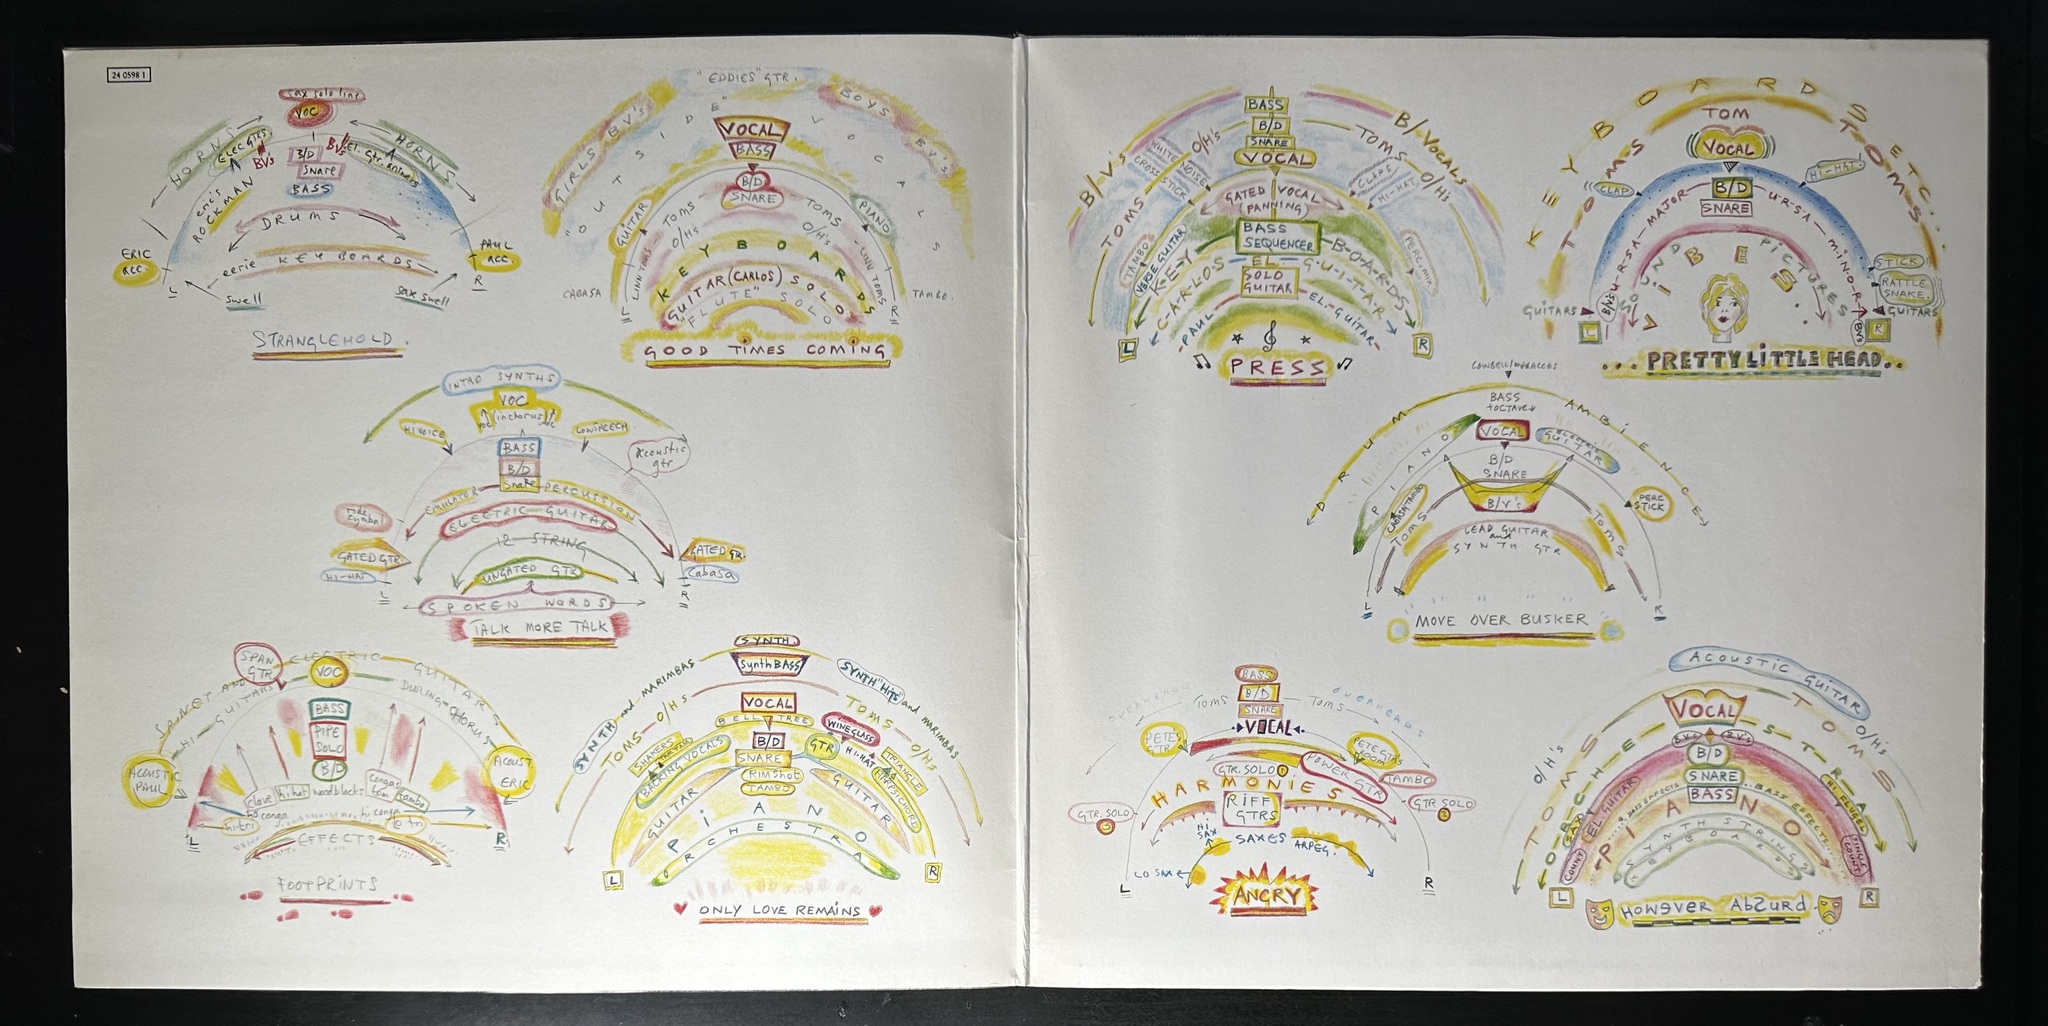 24 0598 1
sax solo line
VOC
HORNS
HORNS
ELEC GTRS
BV's
BV's
El. Gtr. Answers
B/D
Snare
BASS
eric's
ROCKMAN
DRUMS
ERIC
acc.
PAUL
acc.
eerie KEYBOARDS
L
R
swell
sax swell
STRANGLEHOLD.
"EDDIES" GTR.
GIRLS BV's
BOYS BV's
"OUTSIDE" VOCALS
VOCAL
BASS
B/D
SNARE
GUITAR
TOMS
TOMS
PIANO
O/H's
O/H's
LINN TOMS
LINN TOMS
KEYBOARDS
CABASA
TAMBO.
GUITAR (CARLOS) SOLO
"FLUTE" SOLO
L
R
GOOD TIMES COMING
INTRO SYNTHS
VOC
VOC (in chorus) VOC
HI VOICE
LOW SPEECH
BASS
B/D
Snare
Acoustic
gtr
EMULATOR PERCUSSION
ELECTRIC GUITAR
ride
cymbal
12 STRING
GATED GTR
GATED GTR.
HI-HAT
UNGATED GTR
Cabasa
L
R
SPOKEN WORDS
TALK MORE TALK
SPAN
GTR
ELECTRIC GUITARS
VOC
SPINET AND
HI-GUITARS
DURING CHORUS
BASS
PIPE
SOLO
B/D
ACOUST
PAUL
ACOUST.
ERIC
clave
hi hat
woodblocks
congas
tom
tambo
lo conga
hi conga
hi tri
lo tri
L
R
EFFECTS
FOOTPRINTS
SYNTH.
Synth BASS
SYNTH "Hits" and MARIMBAS
SYNTH and MARIMBAS
VOCAL
TOMS O/H's
TOMS O/H's
BELL TREE
WINEGLASS
SHAKERS
BACKING VOCALS
B/D
GTR
HI-HAT
TRIANGLE
SNARE
HARPSICHORD
RIMSHOT
TAMBO
GUITAR
GUITAR
PIANO
ORCHESTRA
L
R
ONLY LOVE REMAINS
BASS
B/D
SNARE
VOCAL
B/V's
B/VOCALS
TOMS
O/H's
TOMS
O/H's
WHITE NOISE
CROSS STICK
CLAPS
HI-HAT
GATED VOCAL
PANNING
BASS
SEQUENCER
TAMBO
VERSE GUITAR
KEY-B-O-A-R-D-S
C-A-R-L-O-S EL. G-U-I-T-A-R
SOLO
GUITAR
PAUL EL-GUITAR
L
R
PRESS
KEYBOARDS ETC..
TOM
VOCAL
TOMS
TOMS
CLAP
HI-HAT
B/D
SNARE
U-R-S-A-MAJOR
U-R-S-A-MINOR
STICK
RATTLE
SNAKE
VIBES
SOUND PICTURES
GUITARS
GUITARS
B/V's
B/V's
L
R
...PRETTY LITTLE HEAD..
COWBELL/MARACCAS
DRUM AMBIENCE
BASS
+OCTAVE
PIANO
VOCAL
ELECTRIC
GUITAR
B/D
SNARE
B/V's
CABASA TAMBO
TOMS
TOMS
PERC
STICK
LEAD GUITAR
and
SYNTH GTR
L
R
MOVE OVER BUSKER
BASS
OVERHEADS
TOMS
B/D
TOMS
OVERHEADS
SNARE
VOCAL
PETE'S
GTR
PETE GTR'S
ROOM
GTR. SOLO
POWER GTR
TAMBO
HARMONIES
GTR. SOLO
GTR SOLO
RIFF
GTRS
HI
SAX
SAXES
ARPEG.
LO SAX
L
R
ANGRY
ACOUSTIC GUITAR
VOCAL
TOMS
O/H's
TOMS
O/H's
ORCHESTRA
B.V's
B.V's
B/D
SNARE
BASS
EL GUITAR
BASS EFFECTS
BASS EFFECTS
HI FLUGEL
PIANO
SYNTH STRINGS
KEYBOARD
COUNT
SINGLE
COUNT
L
R
HOWEVER ABSURD